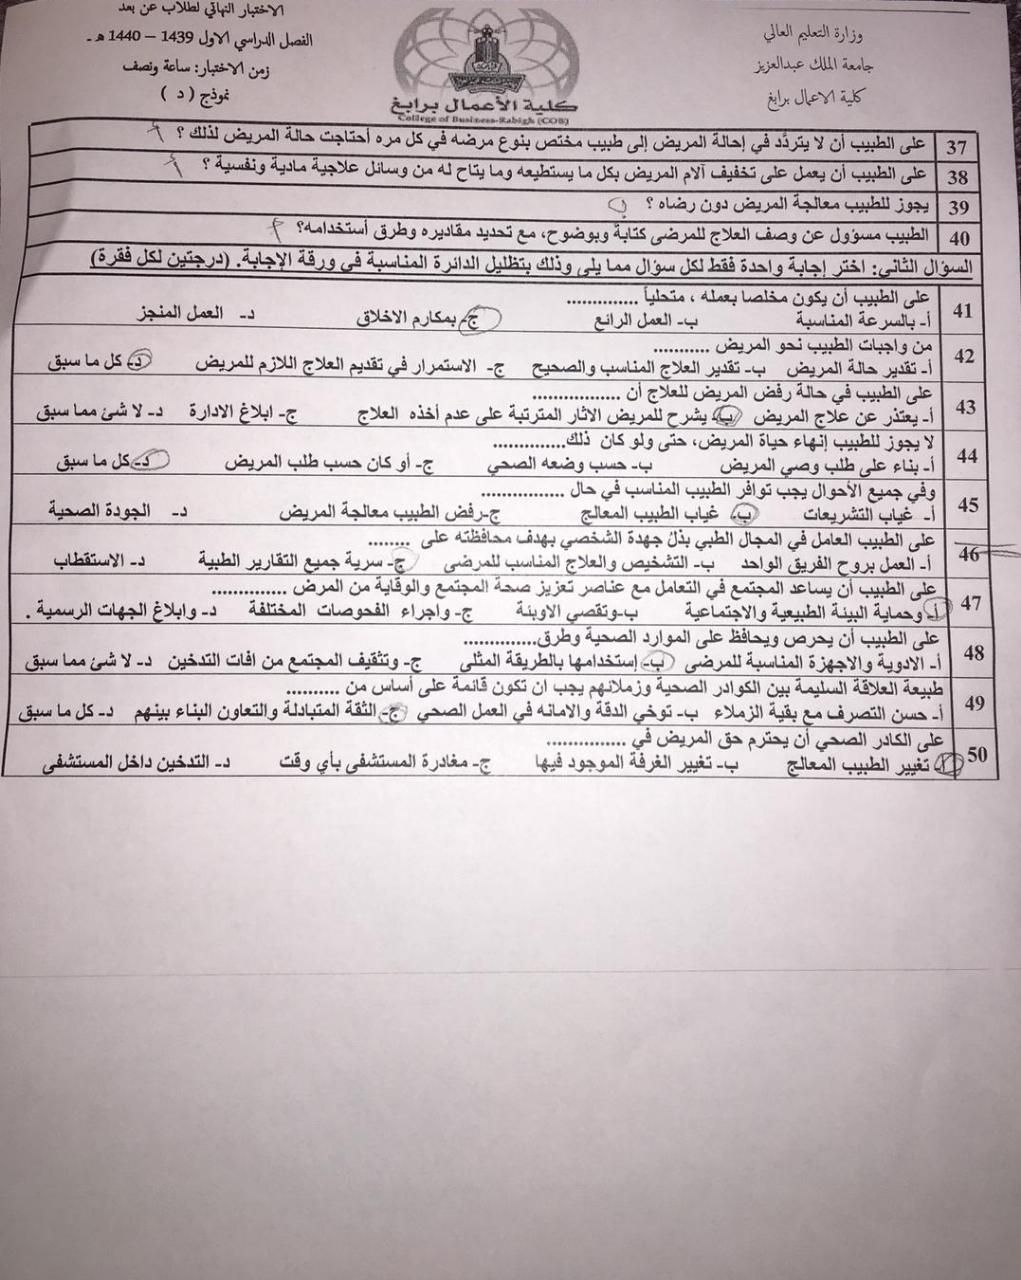 وزارة التعليم العالي
جامعة الملك عبدالعزيز
كلية الاعمال برابغ
كلية الأعمال برابغ
College of Business-Rabigh (COB)
الاختبار النهائي لطلاب عن بعد
الفصل الدراسي الاول 1439 – 1440 هـ.
زمن الاختبار: ساعة ونصف
نموذج ( د )
37 على الطبيب أن لا يتردَّد في إحالة المريض إلى طبيب مختص بنوع مرضه في كل مره أحتاجت حالة المريض لذلك ؟ أ
38 على الطبيب أن يعمل على تخفيف آلام المريض بكل ما يستطيعه وما يتاح له من وسائل علاجية مادية ونفسية ؟ أ
39 يجوز للطبيب معالجة المريض دون رضاه ؟ ب
40 الطبيب مسؤول عن وصف العلاج للمرضى كتابة وبوضوح، مع تحديد مقاديره وطرق أستخدامه؟ أ
السؤال الثاني: اختر إجابة واحدة فقط لكل سؤال مما يلي وذلك بتظليل الدائرة المناسبة في ورقة الإجابة. (درجتين لكل فقرة)
41 على الطبيب أن يكون مخلصا بعمله ، متحلياً ..............
أ- بالسرعة المناسبة ب- العمل الرائع ج- بمكارم الاخلاق د- العمل المنجز
42 من واجبات الطبيب نحو المريض ...........
أ- تقدير حالة المريض ب- تقدير العلاج المناسب والصحيح ج- الاستمرار في تقديم العلاج اللازم للمريض د- كل ما سبق
43 على الطبيب في حالة رفض المريض للعلاج أن .................
أ- يعتذر عن علاج المريض ب- يشرح للمريض الاثار المترتبة على عدم أخذه العلاج ج- ابلاغ الادارة د- لا شئ مما سبق
44 لا يجوز للطبيب إنهاء حياة المريض، حتى ولو كان ذلك..............
أ- بناء على طلب وصي المريض ب- حسب وضعه الصحي ج- أو كان حسب طلب المريض د- كل ما سبق
45 وفي جميع الأحوال يجب توافر الطبيب المناسب في حال ................
أ- غياب التشريعات ب- غياب الطبيب المعالج ج-رفض الطبيب معالجة المريض د- الجودة الصحية
46 على الطبيب العامل في المجال الطبي بذل جهدة الشخصي بهدف محافظته على ........
أ- العمل بروح الفريق الواحد ب- التشخيص والعلاج المناسب للمرضى ج- سرية جميع التقارير الطبية د- الاستقطاب
47 على الطبيب أن يساعد المجتمع في التعامل مع عناصر تعزيز صحة المجتمع والوقاية من المرض ..............
أ- وحماية البيئة الطبيعية والاجتماعية ب-وتقصي الاوبئة ج- واجراء الفحوصات المختلفة د- وابلاغ الجهات الرسمية .
48 على الطبيب أن يحرص ويحافظ على الموارد الصحية وطرق..............
أ- الادوية والاجهزة المناسبة للمرضى ب- إستخدامها بالطريقة المثلى ج- وتثقيف المجتمع من افات التدخين د- لا شئ مما سبق
49 طبيعة العلاقة السليمة بين الكوادر الصحية وزملائهم يجب ان تكون قائمة على أساس من ..........
أ- حسن التصرف مع بقية الزملاء ب- توخي الدقة والامانه في العمل الصحي ج- الثقة المتبادلة والتعاون البناء بينهم د- كل ما سبق
50 على الكادر الصحي أن يحترم حق المريض في ...............
أ- تغيير الطبيب المعالج ب- تغيير الغرفة الموجود فيها ج- مغادرة المستشفى بأي وقت د- التدخين داخل المستشفى